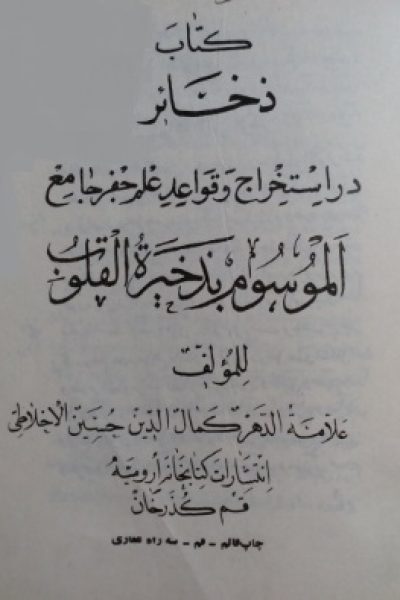 کتاب
ذخائر
در استخراج و قواعد علم جفر جامع
الموسوم بذخیرة القلوب
للمؤلف
علامة الدهر کمال الدین حسین الاخلاطی
انتشارات کتابخانه ارومیه
قم گذرخان
چاپ قائم - قم - سه راه غفاری